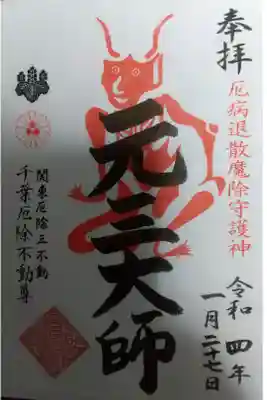 奉拝
厄病退散魔除守護神
令和 四年
一月二十七日
元三大師
関東厄除三不動
千葉厄除不動尊